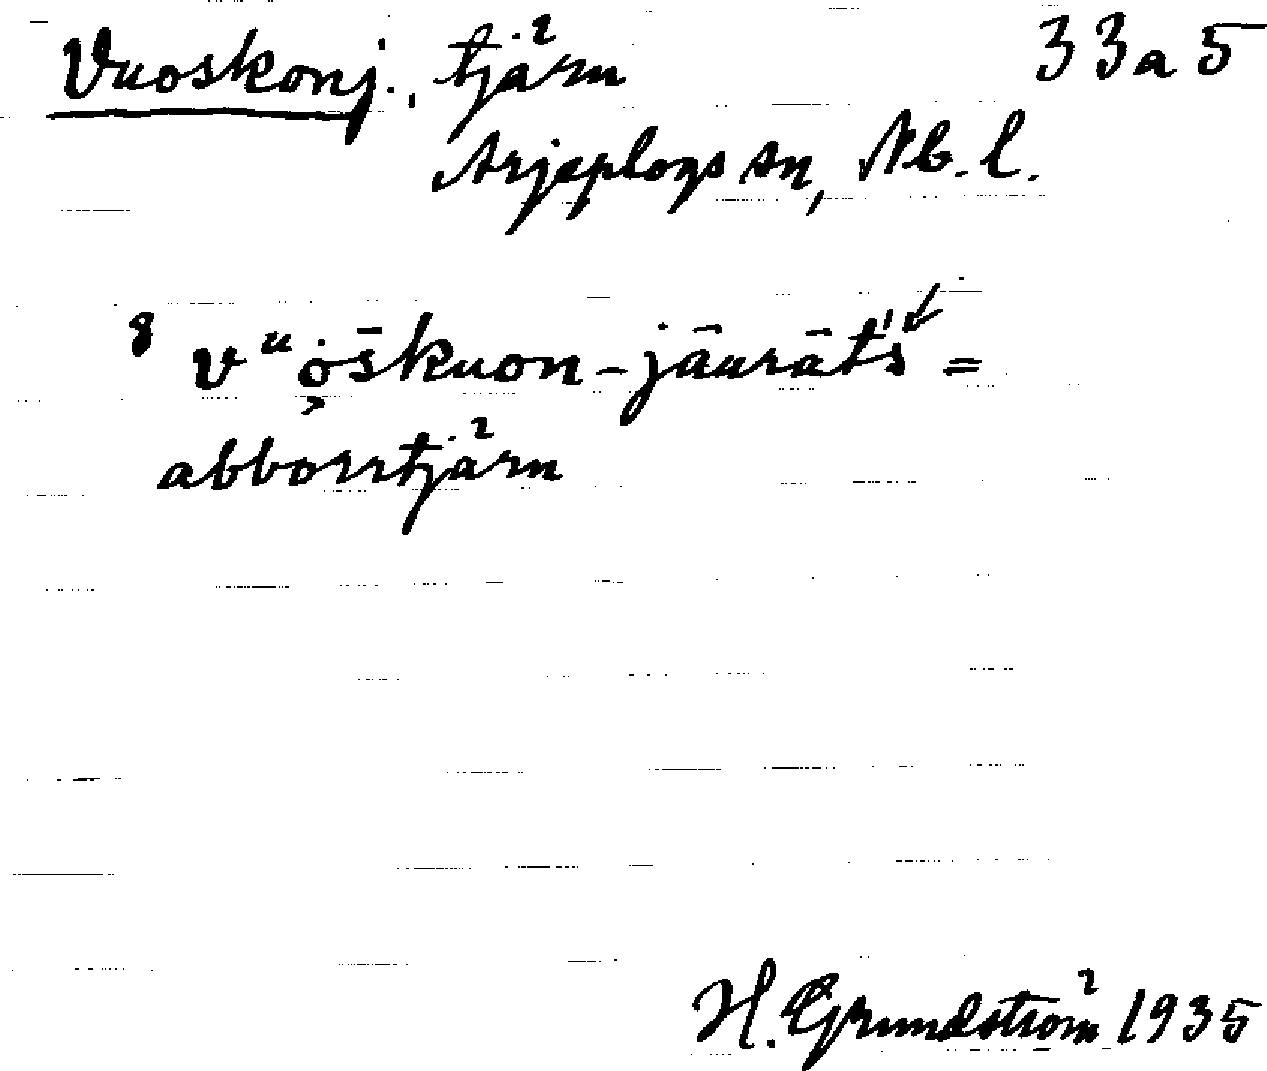 Vuoskonj., tjärn 33a5
Arjeplogs sn, Nb. l.
8 vᵘo̜s̄kuon-jāurāt's =
abborrtjärn
H. Grundström 1935